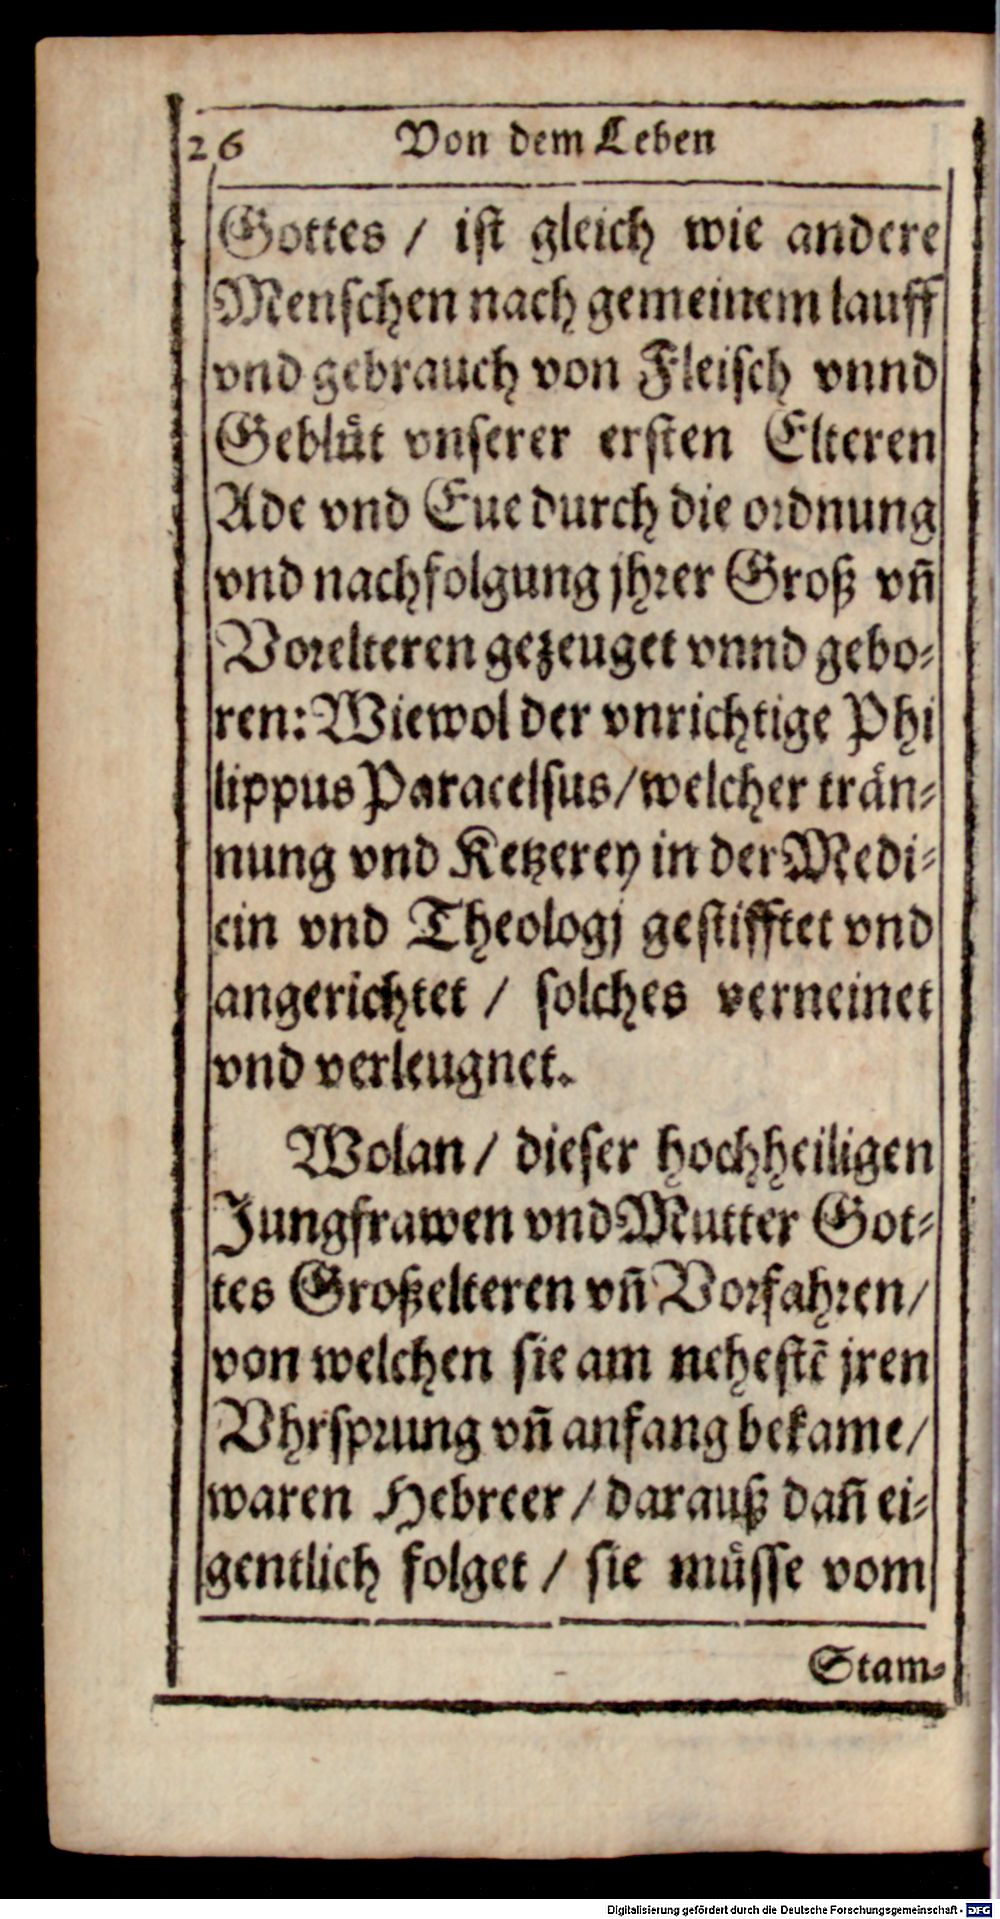 26 Von dem Leben
Gottes / ist gleich wie andere
Menschen nach gemeinem lauff
vnd gebrauch von Fleisch vnnd
Geblüt vnserer ersten Elteren
Ade vnd Eue durch die ordnung
vnd nachfolgung jhrer Groß vñ
Vorelteren gezeuget vnnd gebo-
ren: Wiewol der vnrichtige Phi
lippus Paracelsus / welcher trän-
nung vnd Ketzerey in der Medi-
cin vnd Theologj gestifftet vnd
angerichtet / solches verneinet
vnd verleugnet.
Wolan / dieser hochheiligen
Jungfrawen vnd Mutter Got-
tes Großelteren vñ Vorfahren /
von welchen sie am nehestē jren
Vhrsprung vñ anfang bekame /
waren Hebreer / darauß dañ ei-
gentlich folget / sie müsse vom
Stam-
Digitalisierung gefördert durch die Deutsche Forschungsgemeinschaft - DFG